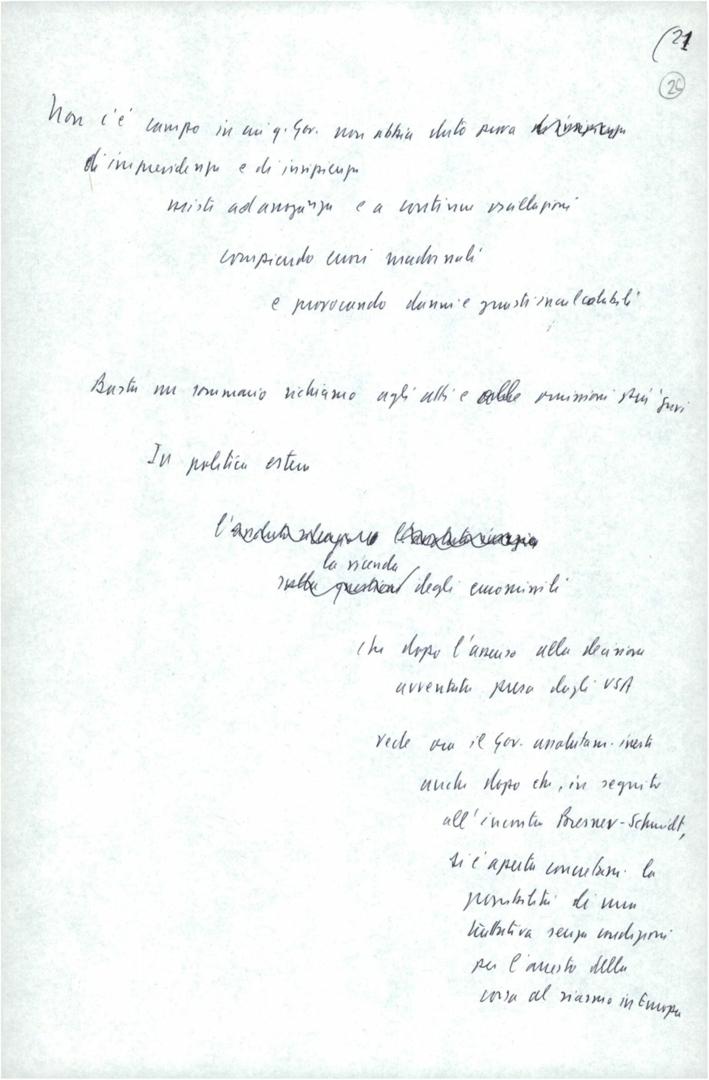 (21
26
Non c'è campo in cui q. Gov. non abbia dato prova
di imprevidenza e di insipienza
misti ad arroganza e a continue oscillazioni
compiendo errori madornali
e provocando danni e guasti incalcolabili
Basta un sommario richiamo agli atti e alle omissioni più gravi
In politica estera
la vicenda
degli euromissili
che dopo l'assenso alla decisione
avventata presa dagli USA
vede ora il Gov. assolutam. inerte
anche dopo che, in seguito
all'incontro Bresnev-Schmidt,
si è aperta concretam. la
possibilità di una
trattativa senza condizioni
per l'arresto della
corsa al riarmo in Europa